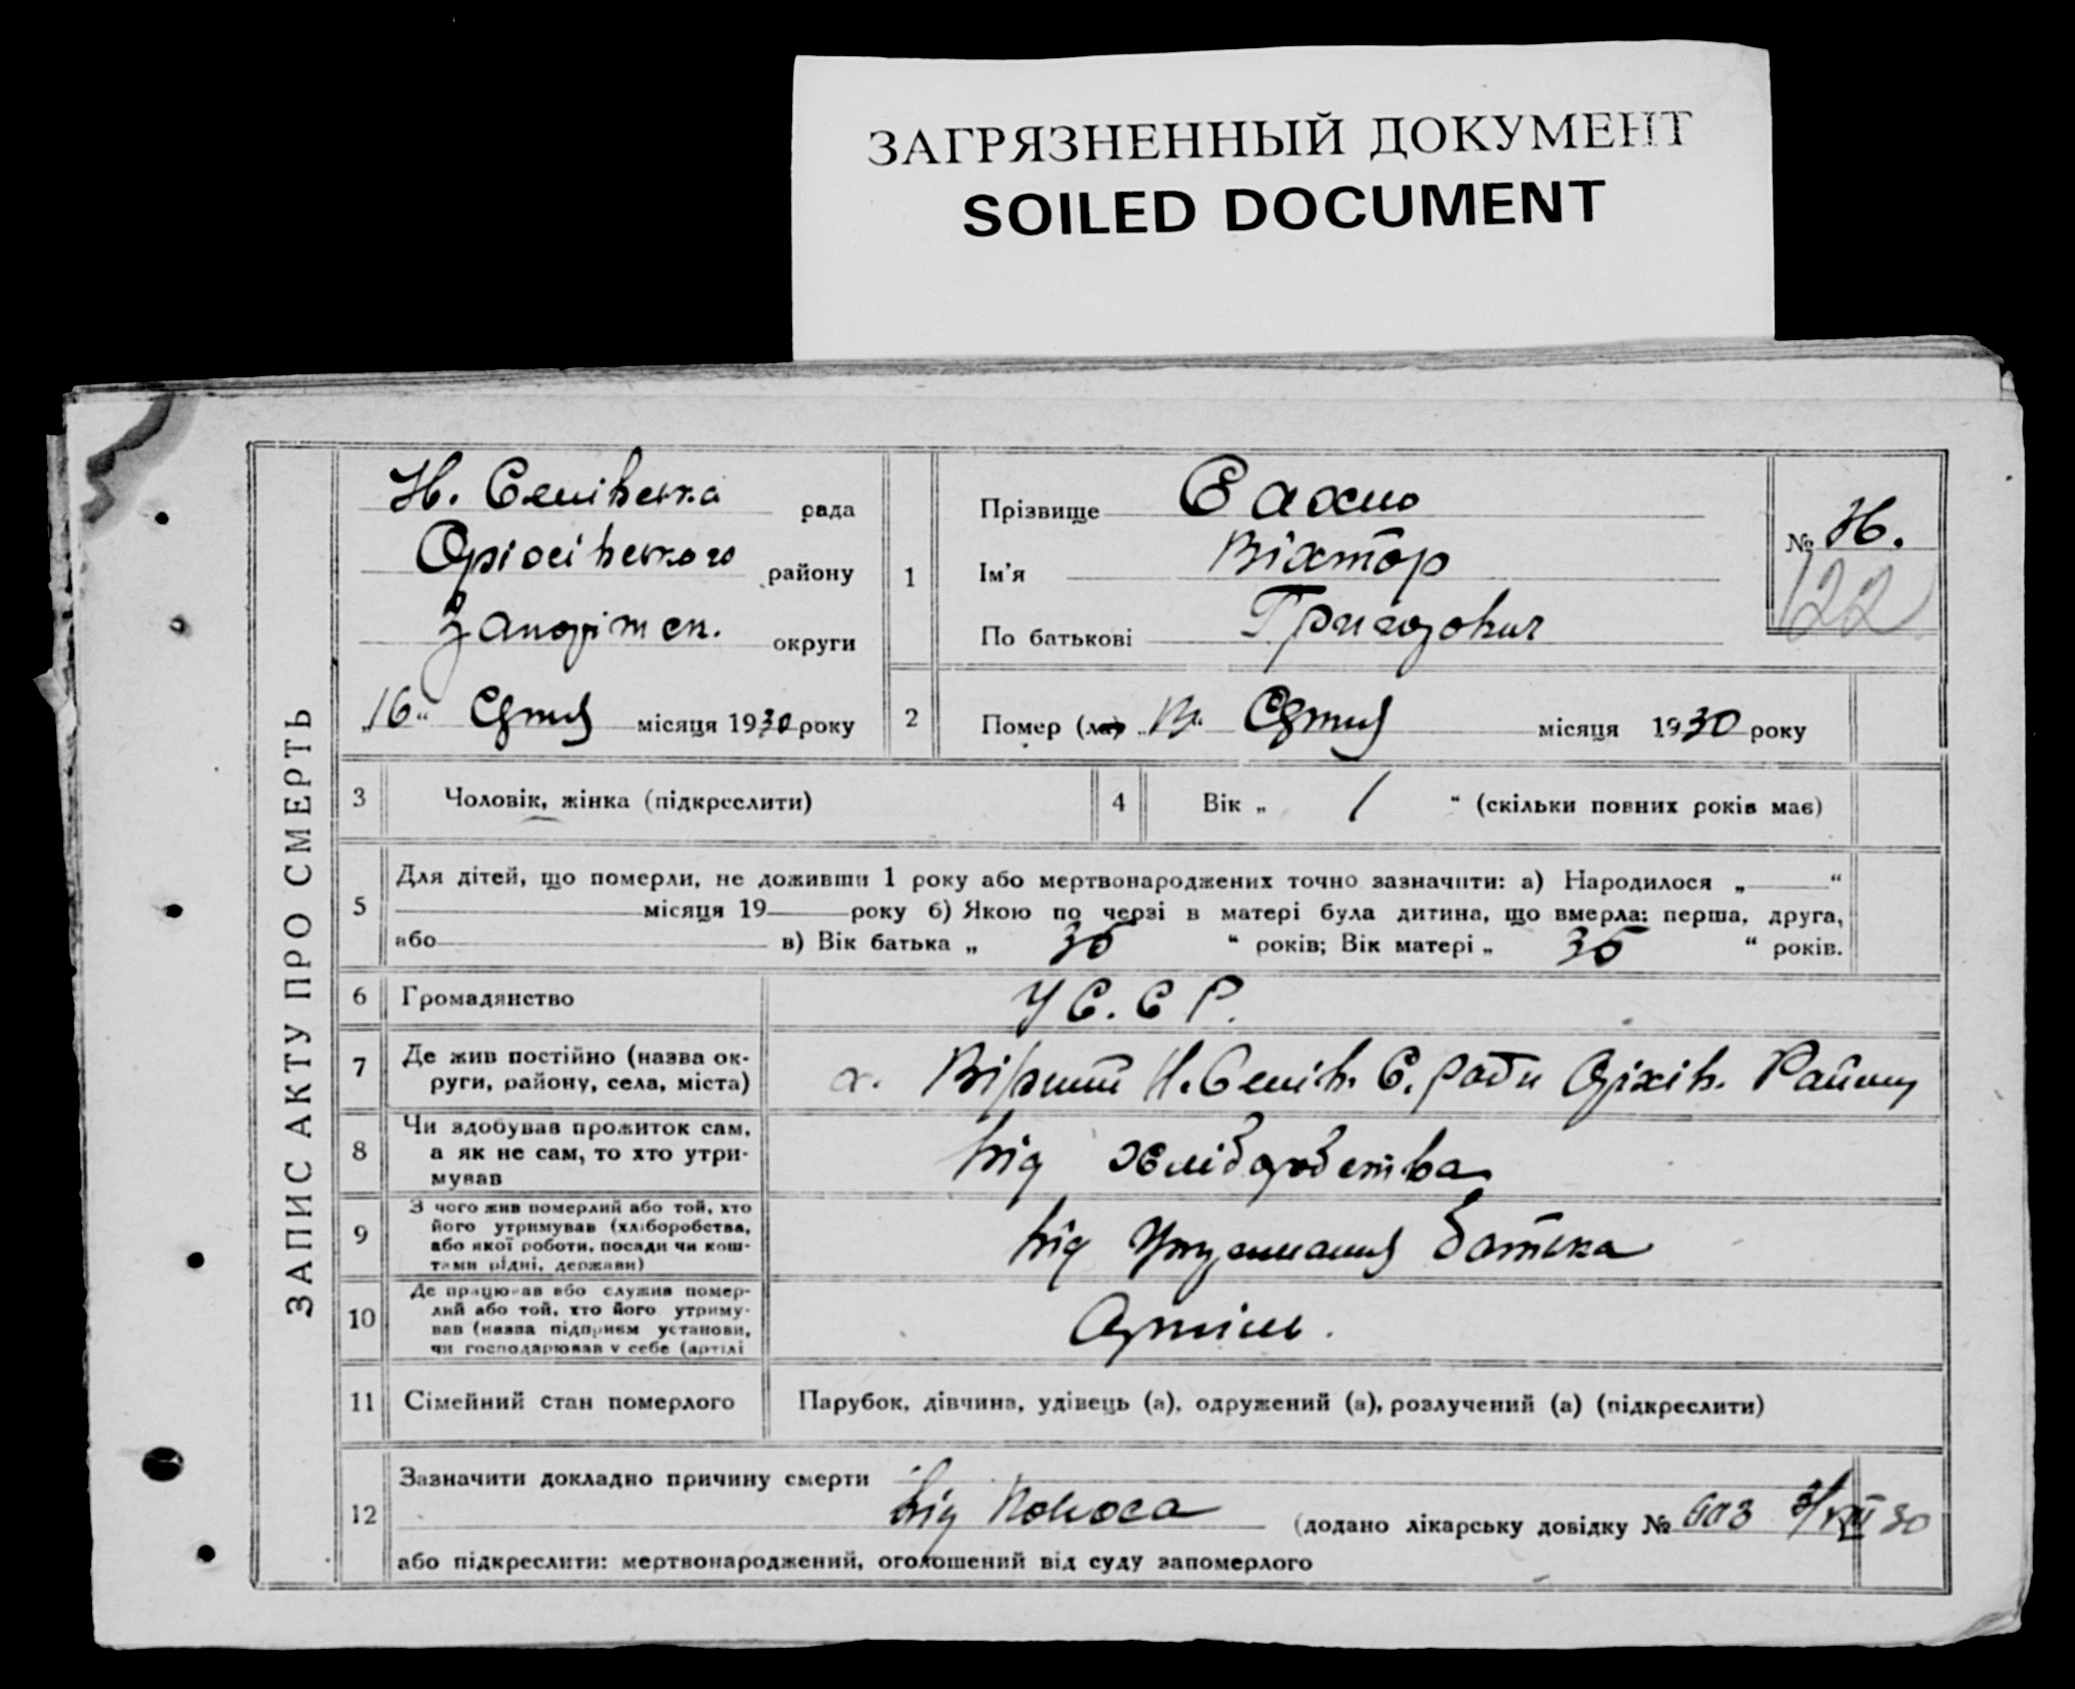 ЗАГРЯЗНЕННЫЙ ДОКУМЕНТ
SOILED DOCUMENT
ЗАПИС АКТУ ПРО СМЕРТЬ
рада
району
округи
„16“ місяця 1930 року
1
Прізвище
Ім'я Віхтор
По батькові
№
122
2
Помер (ла) місяця 1930 року
3 Чоловік, жінка (підкреслити)
4 Вік „ 1 “ (скільки повних років має)
5 Для дітей, що померли, не доживши 1 року або мертвонароджених точно зазначити: а) Народилося „ “
місяця 19 року б) Якою по черзі в матері була дитина, що вмерла: перша, друга,
або в) Вік батька „ 35 “ років; Вік матері „ 35 “ років.
6 Громадянство У С. С Р.
7 Де жив постійно (назва ок-
руги, району, села, міста)
х. Н. Селів. С. Ради Оріхів. Району
8 Чи здобував прожиток сам,
а як не сам, то хто утри-
мував
від хліборобства
9 З чого жив померлий або той, хто
його утримував (хліборобства,
або якої роботи, посади чи кош-
тами рідні, держави)
від батька
10 Де працював або служив помер-
лий або той, хто його утриму-
вав (назва підприєм установи,
чи господарював у себе (артілі
Артіль.
11 Сімейний стан померлого Парубок, дівчина, удівець (а), одружений (а), розлучений (а) (підкреслити)
12 Зазначити докладно причину смерти
від поноса (додано лікарську довідку № 603 30
або підкреслити: мертвонароджений, оголошений від суду запомерлого